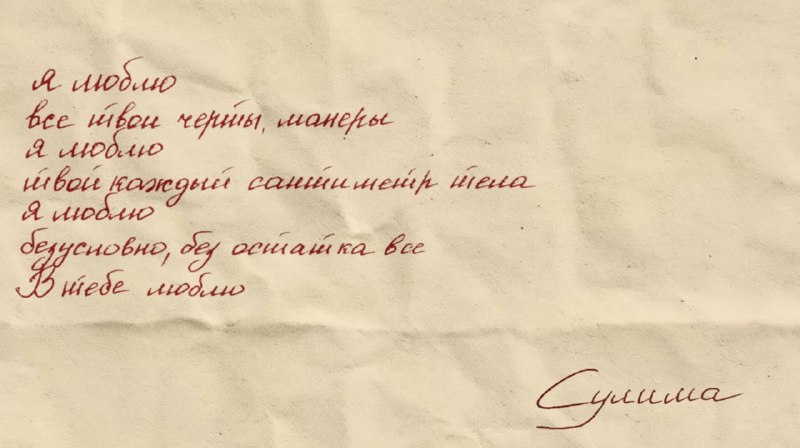 я люблю
все твои черты, манеры
я люблю
твой каждый сантиметр тела
я люблю
безусловно, без остатка все
В тебе люблю
Сулима